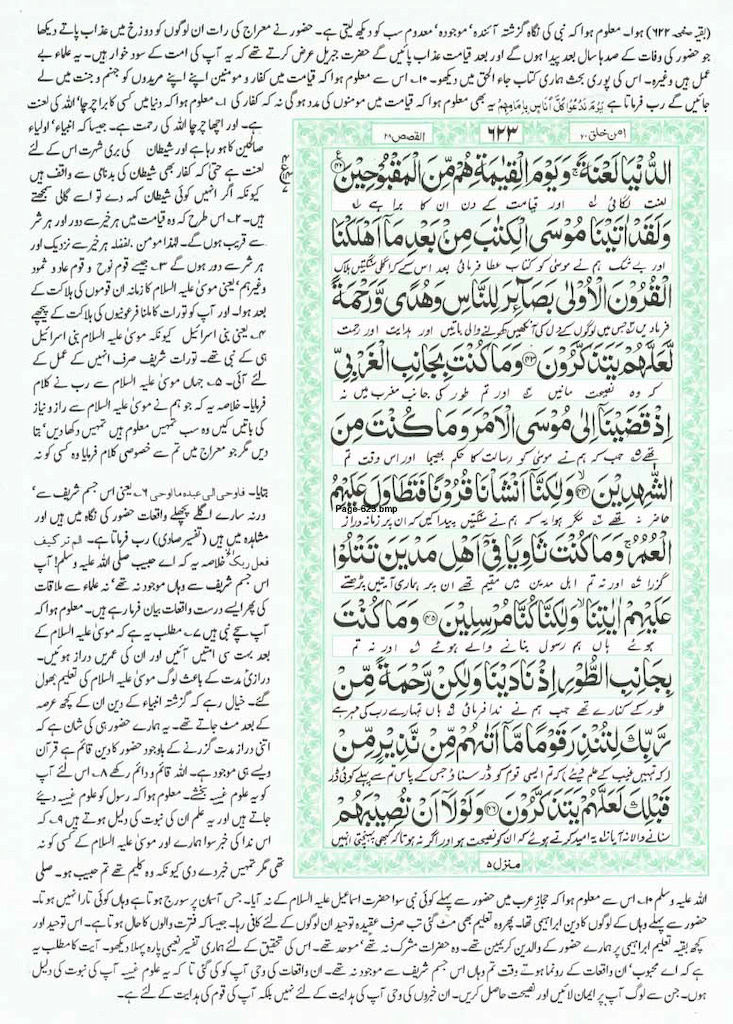 (بقیہ صفحہ ۶۲۲) ہوا۔ معلوم ہوا کہ نبی کی نگاہ گزشتہ آئندہ' موجودہ' معدوم سب کو دیکھ لیتی ہے۔ حضور نے معراج کی رات ان لوگوں کو دوزخ میں عذاب پاتے دیکھا
جو حضور کی وفات کے صدہا سال بعد پیدا ہوں گے اور بعد قیامت عذاب پائیں گے حضرت جبریل عرض کرتے تھے کہ یہ آپ کی امت کے سود خوار ہیں۔ یہ علماء بے
عمل ہیں وغیرہ۔ اس کی پوری بحث ہماری کتاب جاء الحق میں دیکھو۔ ۱۰۔ اس سے معلوم ہوا کہ قیامت میں کفار و مومنین اپنے اپنے مریدوں کو جہنم و جنت میں لے
جائیں گے رب فرماتا ہے یَوْمَ نَدْعُوْا کُلَّ اُنَاسٍۭ بِاِمَامِهِمْ یہ بھی معلوم ہوا کہ قیامت میں مومنوں کی مدد ہوگی نہ کہ کفار کی ۱۔ معلوم ہوا کہ دنیا میں کسی کا برا چرچا' اللہ کی لعنت
ہے۔ اور اچھا چرچا اللہ کی رحمت ہے۔ جیسا کہ انبیاء' اولیاء
صالحین کا ہو رہا ہے اور شیطان کی بری شہرت اس کے لئے
لعنت ہے حتی کہ کفار بھی شیطان کی بدنامی سے واقف ہیں
کیونکہ اگر انہیں کوئی شیطان کہہ دے تو اسے گالی سمجھتے
ہیں۔ ۲۔ اس طرح کہ وہ قیامت میں ہر خیر سے دور اور ہر شر
سے قریب ہوں گے۔ لہذا مومن بفضلہ ہر خیر سے نزدیک اور
ہر شر سے دور ہوں گے ۳۔ جیسے قوم نوح و قوم عاد و ثمود
وغیرہم' یعنی موسیٰ علیہ السلام کا زمانہ ان قوموں کی ہلاکت کے
بعد ہوا۔ اور آپ کو تورات کا ملنا فرعونیوں کی ہلاکت کے پیچھے
۴۔ یعنی بنی اسرائیل کیونکہ موسیٰ علیہ السلام بنی اسرائیل
ہی کے نبی تھے۔ تورات شریف صرف انہیں کے عمل کے
لئے آئی۔ ۵۔ جہاں موسیٰ علیہ السلام سے رب نے کلام
فرمایا۔ خلاصہ یہ کہ جو ہم نے موسیٰ علیہ السلام سے راز و نیاز
کی باتیں کیں وہ سب تمہیں معلوم ہیں تمہیں دکھا دیں' بتا
دیں مگر جو معراج میں تم سے خصوصی کلام فرمایا وہ کسی کو نہ
بتایا۔ فاوحی الی عبدہ ما اوحی ۶۔ یعنی اس جسم شریف سے'
ورنہ سارے اگلے پچھلے واقعات حضور کی نگاہ میں ہیں اور
مشاہدہ میں ہیں (تفسیر صاوی) رب فرماتا ہے۔ الم تر کیف
فعل ربک خلاصہ یہ کہ اے حبیب صلی اللہ علیہ وسلم! آپ
اس جسم شریف سے وہاں موجود نہ تھے' نہ علماء سے ملاقات
کی پھر ایسے درست واقعات بیان فرما رہے ہیں۔ معلوم ہوا کہ
آپ سچے نبی ہیں ۷۔ مطلب یہ ہے کہ موسیٰ علیہ السلام کے
بعد بہت سی امتیں آئیں اور ان کی عمریں دراز ہوئیں۔
درازئی مدت کے باعث لوگ موسیٰ علیہ السلام کی تعلیم بھول
گئے۔ خیال رہے کہ گزشتہ انبیاء کے دین ان کے کچھ عرصہ
کے بعد مٹ جاتے تھے۔ یہ ہمارے حضور ہی کی شان ہے کہ
اتنی دراز مدت گزرنے کے باوجود حضور کا دین قائم ہے قرآن
ویسے ہی موجود ہے۔ اللہ قائم و دائم رکھے ۸۔ اس لئے آپ
کو یہ علوم غیبیہ بخشے۔ معلوم ہوا کہ رسول کو علوم غیبیہ دیئے
جاتے ہیں اور یہ علم ان کی نبوت کی دلیل ہوتے ہیں ۹۔ کہ
اس ندا کی خبر سوا ہمارے اور موسیٰ علیہ السلام کے کسی کو نہ
تھی مگر تمہیں خبر دے دی کیونکہ وہ کلیم تھے تم حبیب ہو۔ صلی
امن خلق ۲۰
۶۲۳
القصص ۲۸
الدُّنْیَا لَعْنَةً ۚ وَیَوْمَ الْقِیٰمَةِ هُمْ مِّنَ الْمَقْبُوْحِیْنَ ﴿۴۲﴾
لعنت لگائی لہ اور قیامت کے دن ان کا برا ہے
وَلَقَدْ اٰتَیْنَا مُوْسَی الْکِتٰبَ مِنْۢ بَعْدِ مَاۤ اَهْلَکْنَا
اور بے شک ہم نے موسیٰ کو کتاب عطا فرمائی بعد اس کے کہ اگلی سنگتیں ہلاک
الْقُرُوْنَ الْاُوْلٰی بَصَآئِرَ لِلنَّاسِ وَهُدًی وَّرَحْمَةً
فرما دیں جس میں لوگوں کے دل کی آنکھیں کھولنے والی باتیں اور ہدایت اور رحمت
لَّعَلَّهُمْ یَتَذَکَّرُوْنَ ﴿۴۳﴾ وَمَا کُنْتَ بِجَانِبِ الْغَرْبِیِّ
کہ وہ نصیحت مانیں اور تم طور کی جانب مغرب میں نہ
اِذْ قَضَیْنَاۤ اِلٰی مُوْسَی الْاَمْرَ وَمَا کُنْتَ مِنَ
تھے جب کہ ہم نے موسیٰ کو رسالت کا حکم بھیجا اور اس وقت تم
الشّٰهِدِیْنَ ﴿۴۴﴾ وَلٰکِنَّاۤ اَنْشَاْنَا قُرُوْنًا فَتَطَاوَلَ عَلَیْهِمُ
Page-623.bmp
حاضر نہ تھے مگر ہوا یہ کہ ہم نے سنگتیں پیدا کیں کہ ان پر زمانہ دراز
الْعُمُرُ ۚ وَمَا کُنْتَ ثَاوِیًا فِیْۤ اَهْلِ مَدْیَنَ تَتْلُوْا
گزرا اور نہ تم اہل مدین میں مقیم تھے ان پر ہماری آیتیں پڑھتے
عَلَیْهِمْ اٰیٰتِنَا ۙ وَلٰکِنَّا کُنَّا مُرْسِلِیْنَ ﴿۴۵﴾ وَمَا کُنْتَ
ہوئے ہاں ہم رسول بنانے والے ہوئے اور نہ تم
بِجَانِبِ الطُّوْرِ اِذْ نَادَیْنَا وَلٰکِنْ رَّحْمَةً مِّنْ
طور کے کنارے تھے جب ہم نے ندا فرمائی ہاں تمہارے رب کی مہر ہے
رَّبِّکَ لِتُنْذِرَ قَوْمًا مَّاۤ اَتٰىهُمْ مِّنْ نَّذِیْرٍ مِّنْ
کہ تمہیں غیب کے علم دیئے کہ تم ایسی قوم کو ڈر سناؤ جس کے پاس تم سے پہلے کوئی ڈر
قَبْلِکَ لَعَلَّهُمْ یَتَذَکَّرُوْنَ ﴿۴۶﴾ وَلَوْلَاۤ اَنْ تُصِیْبَهُمْ
سنانے والا نہ آیا یہ امید کرتے ہوئے کہ ان کو نصیحت ہو اور اگر نہ ہوتا کہ کبھی پہنچتی انہیں
منزل ۵
اللہ علیہ وسلم ۱۰۔ اس سے معلوم ہوا کہ حجاز عرب میں حضور سے پہلے کوئی نبی سوا حضرت اسماعیل علیہ السلام کے نہ آیا۔ جس آسمان پر سورج ہوتا ہے وہاں کوئی تارا نہیں ہوتا۔
حضور سے پہلے وہاں کے لوگوں کا دین ابراہیمی تھا۔ پھر وہ تعلیم بھی مٹ گئی تب صرف عقیدہ توحید ان لوگوں کے لئے کافی رہا۔ جیسا کہ فترت والوں کا حال ہوتا ہے۔ اس توحید اور
کچھ بقیہ تعلیم ابراہیمی پر ہمارے حضور کے والدین کریمین تھے۔ وہ حضرات مشرک نہ تھے' موحد تھے۔ اس کی تحقیق کے لئے ہماری تفسیر نعیمی پارہ پہلا دیکھو۔ آیت کا مطلب یہ
ہے کہ اے محبوب' ان واقعات کے رونما ہوتے وقت تم وہاں اس جسم شریف سے موجود نہ تھے۔ ان واقعات کی وحی آپ کو کی گئی تا کہ یہ علوم غیبیہ آپ کی نبوت کی دلیل
ہوں۔ جن سے لوگ آپ پر ایمان لائیں اور نصیحت حاصل کریں۔ ان خبروں کی وحی آپ کی ہدایت کے لئے نہیں بلکہ آپ کی قوم کی ہدایت کے لئے ہے۔